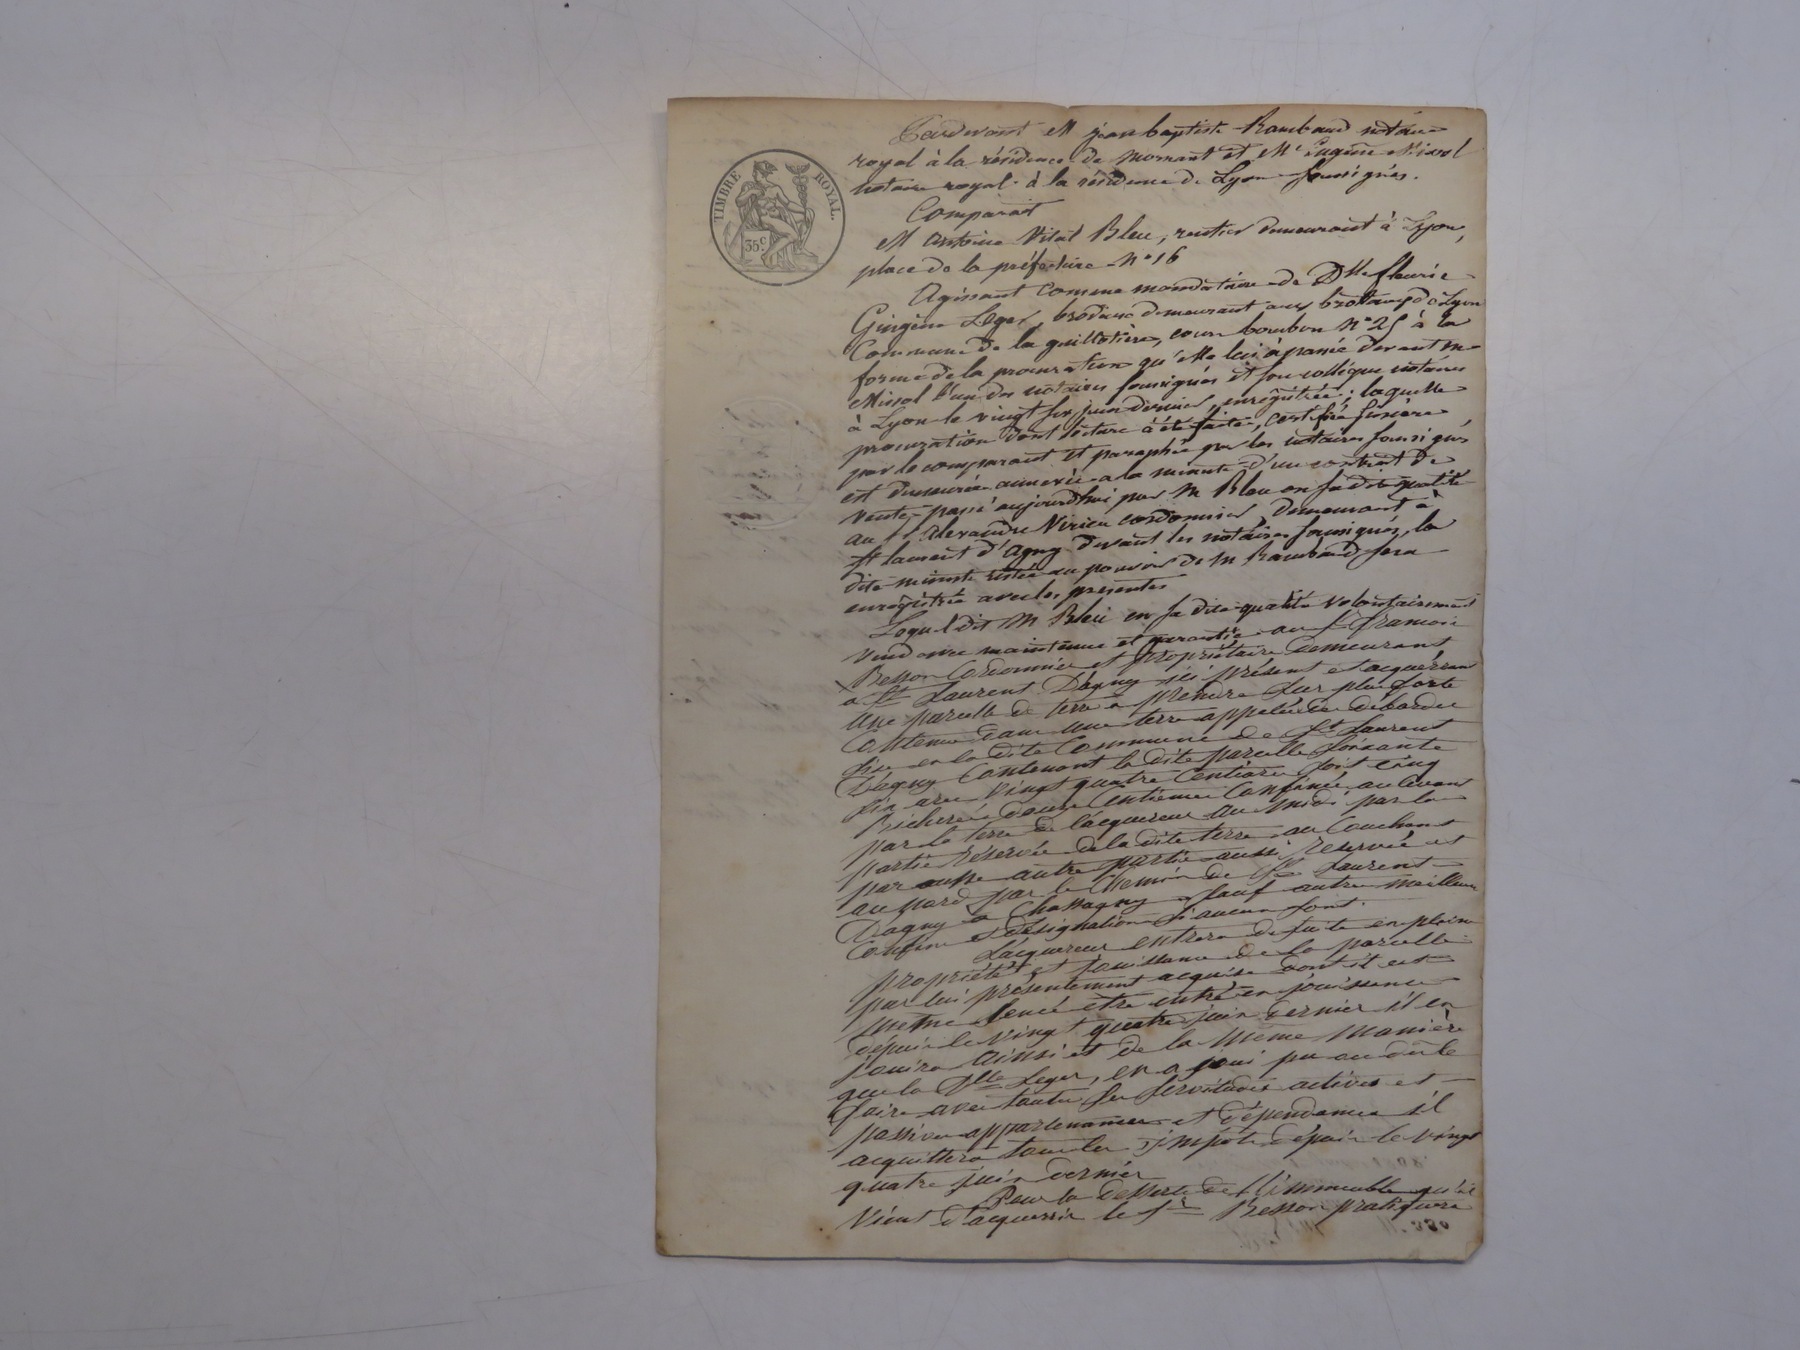 TIMBRE ROYAL.
35c
Pardevant M jean baptiste Rambaud notaire
royal à la résidence de mornant et Me Eugène Missol
notaire royal à la résidence de Lyon soussignés.
Comparait
M Antoine Vital Bleu, rentier demeurant à Lyon,
place de la préfecture No 16
Agissant comme mandataire de Dlle fleurie
Leger, brodeuse demeurant aux brotteaux de Lyon
Commune de la guillotière, cours bourbon No 25 à la
forme de la procuration qu'elle lui à passée devant me
Missol l'un des notaires soussignés et son collègue notaires
à Lyon le vingt six juin dernier, enregistrée, laquelle
procuration dont lecture à été faite, certifiée sincère
par le comparant et paraphée par les notaires soussignés
est demeurée annexée a la minute d'un contrat de
vente passé aujourd'hui par M Bleu en sa dite qualité
au Sr Alexandre Virieu cordonnier demeurant à
St laurent d'agny devant les notaires soussignés, la
dite minute restée au pouvoir de M Rambaud sera
enregistrée avec les presentes
Lequel dit M Bleu en sa dite qualité volontairement
vend avec maintenue et garantie au Sr francois
Besson Cordonnier et propriétaire demeurant
a St Laurent Dagny ici présent et acquéreur
Une parcelle de terre a prendre sur plus forte
Contenue dans une terre appelée debardee
sise en la dite Commune de St Laurent
Dagny Contenant la dite parcelle soixante
six ares vingt quatre Centiares soit cinq
Bicherées douze Centiemes Confinée au levant
par la terre de l'acquereur au Midi par la
partie réservée de la dite terre au Couchant
par autre partie aussi reservée et
au nord par le Chemin de St Laurent
Dagny a Chassagny sauf autres meilleurs
Confins et désignations si aucun sont.
L'acquereur entrera de suite en pleine
propriété et jouissance de la parcelle
par lui présentement acquise dont il est
meme sencé être entré en jouissance
depuis le vingt quatre juin dernier il en
jouira ainsi et de la meme manière
que la Dlle Leger, en a joui pu ou du le
faire avec toutes ses servitudes actives et
passives appartenances et dépendances il
acquittera tous les impôts depuis le vingt
quatre juin dernier
Pour la desserte de l'immeuble qu'il
Vient d'acquerir le Sr Besson pratiquera